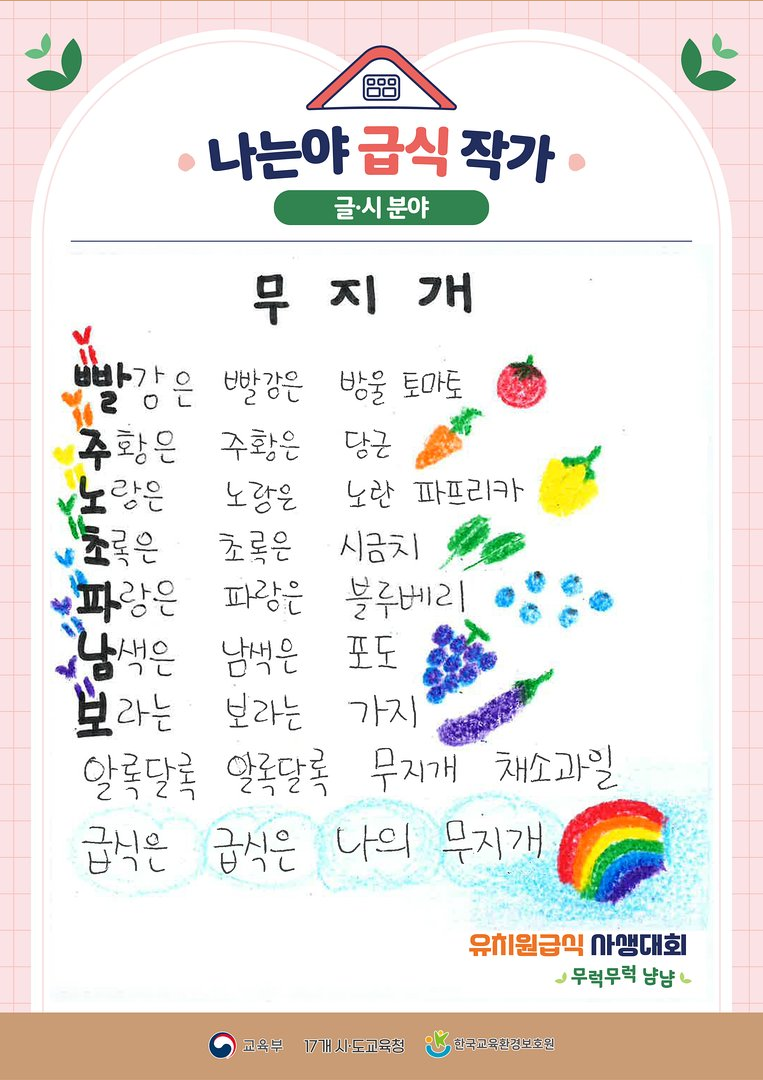 나는야 급식 작가
글·시 분야
무지개
빨강은 빨강은 방울 토마토
주황은 주황은 당근
노랑은 노랑은 노란 파프리카
초록은 초록은 시금치
파랑은 파랑은 블루베리
남색은 남색은 포도
보라는 보라는 가지
알록달록 알록달록 무지개 채소과일
급식은 급식은 나의 무지개
유치원급식 사생대회
무럭무럭 냠냠
교육부 17개 시·도교육청 한국교육환경보호원